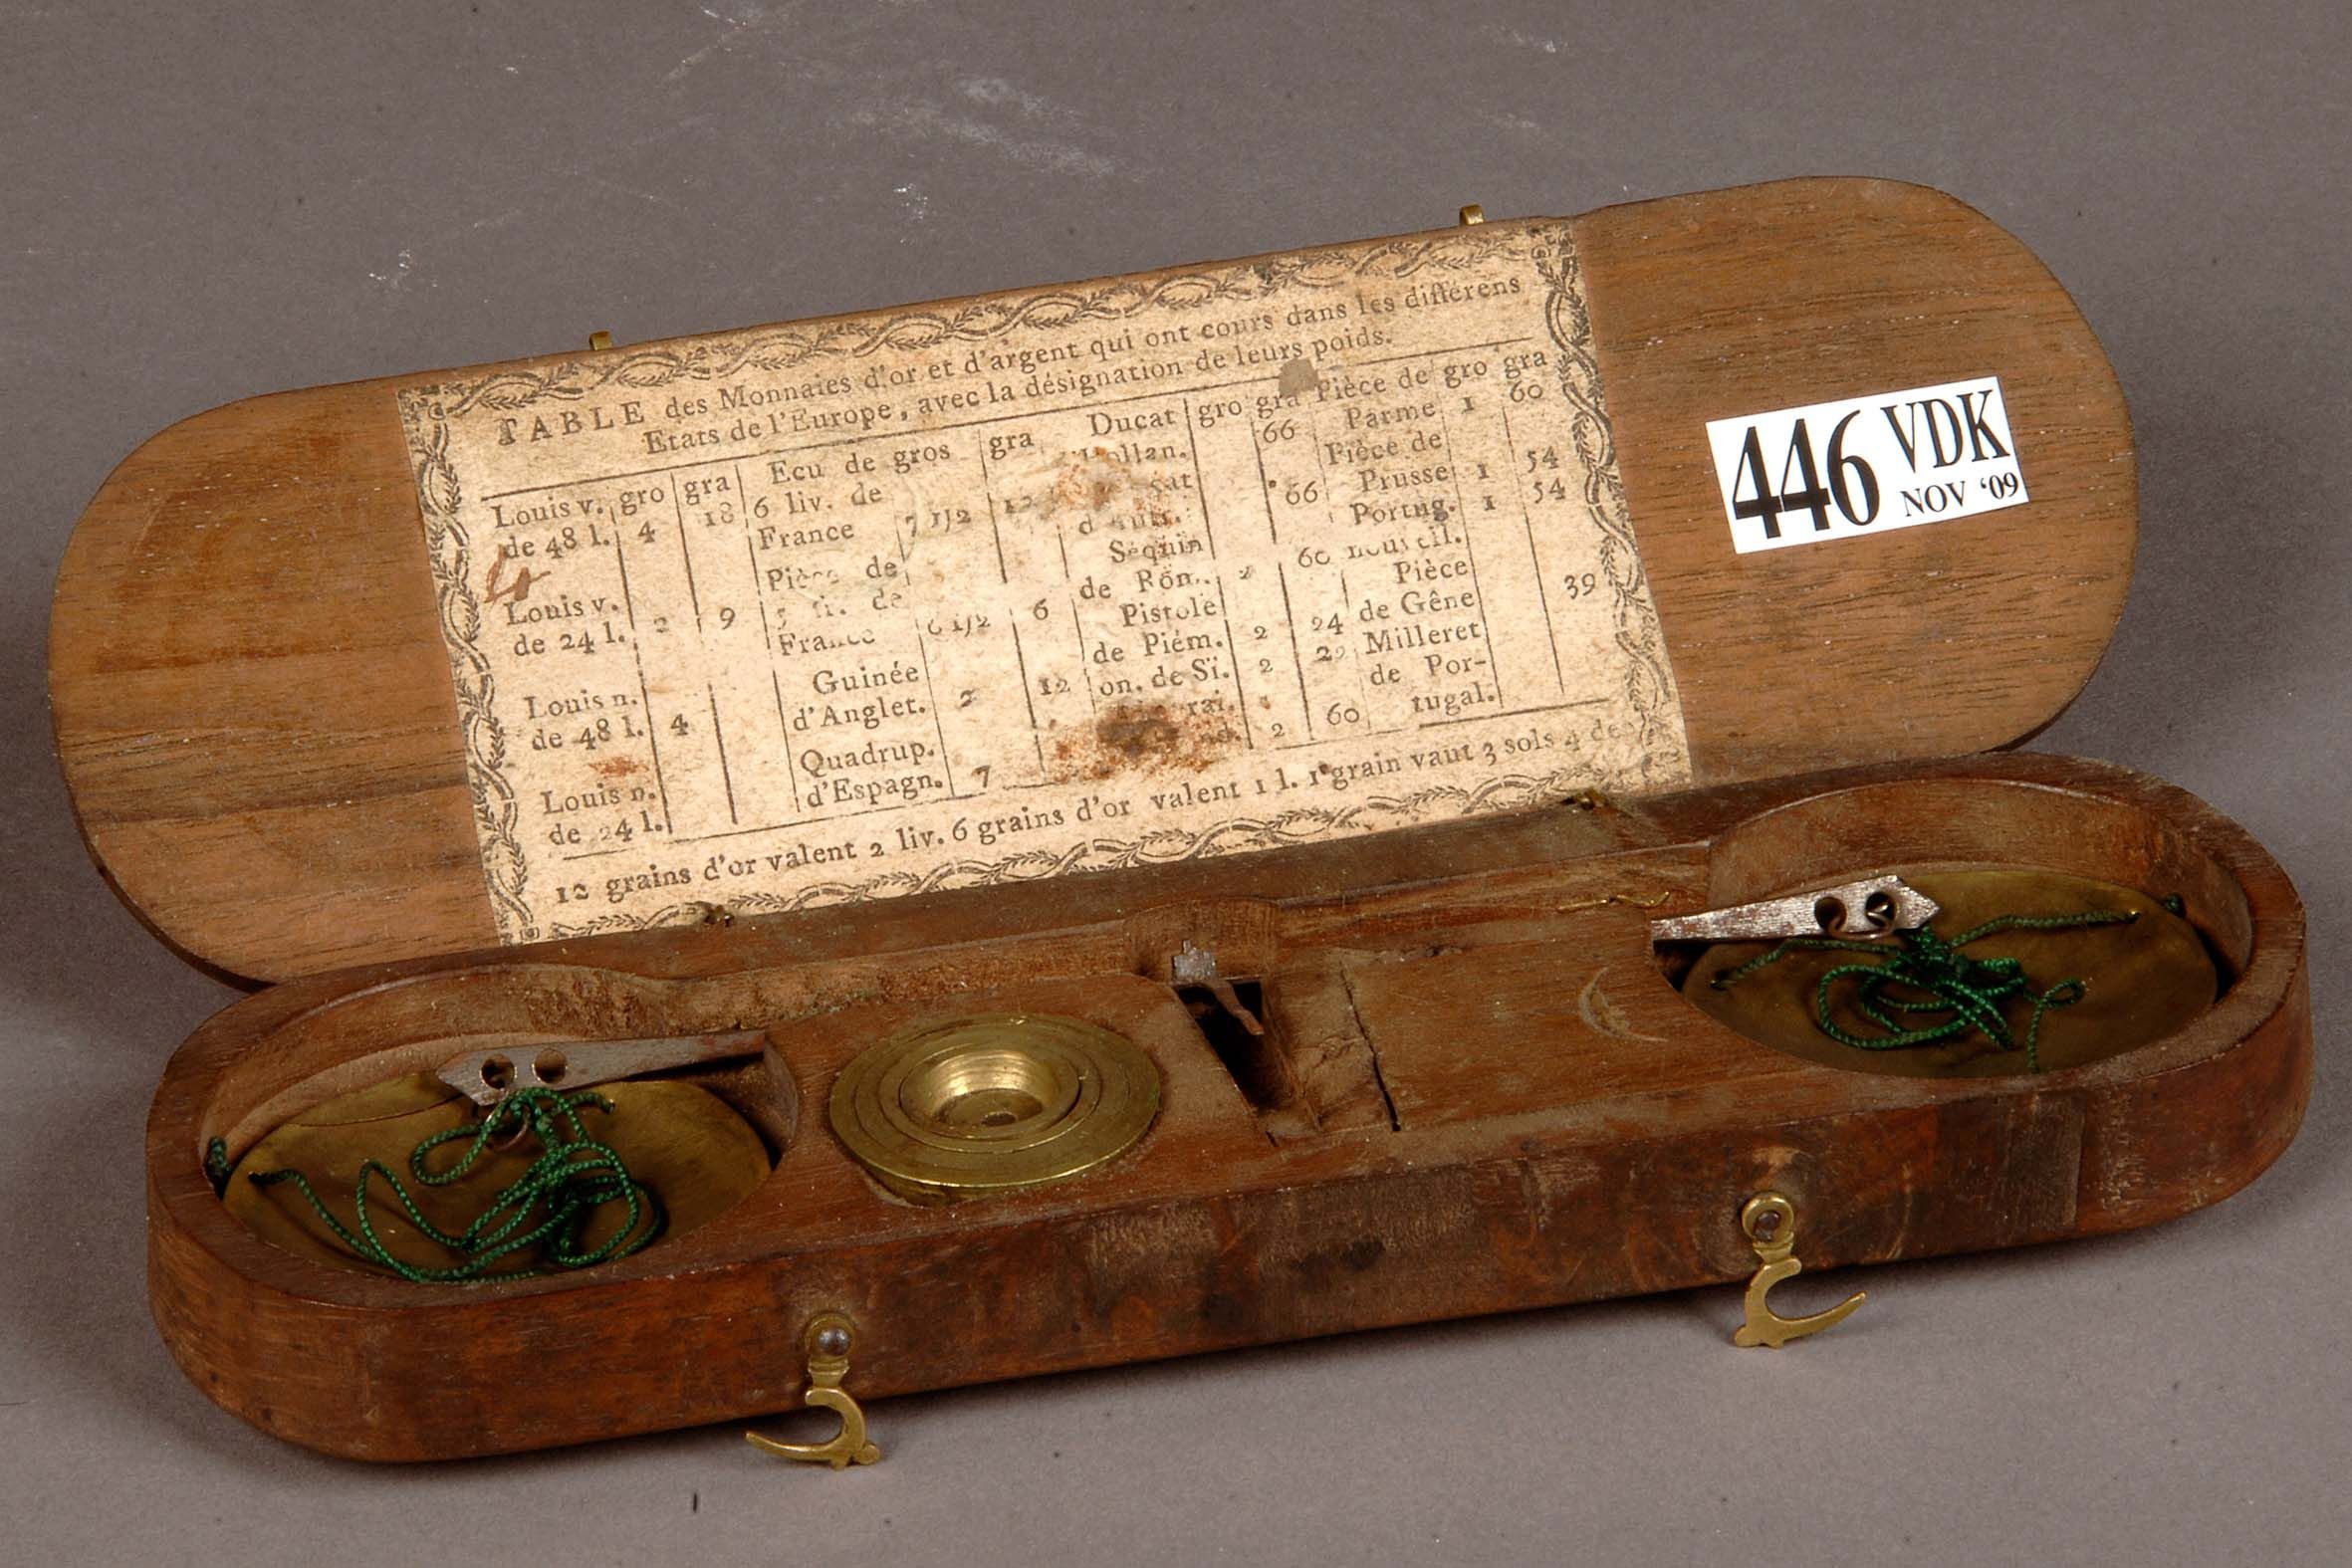 TABLE des Monnaies d'or et d'argent qui ont cours dans les différens
Etats de l'Europe, avec la désignation de leurs poids.
Louis v. gro gra
de 48 l. 4 18
Louis v.
de 24 l. 2 9
Louis n.
de 48 l. 4
Louis n.
de 24 l.
Ecu de gros gra
6 liv. de
France 7 1/2 12
Pièce de
de
France 6 1/2 6
Guinée
d'Anglet. 2 12
Quadrup.
d'Espagn. 7
Ducat gro gra
Hollan. 66
66
Séquin
de Rom. 60
Pistole
de Piém. 2 24
on. de Si. 2
2 60
Pièce de gro gra
Parme 1 60
Pièce de
Prusse 1 54
Portug. 1 54
Pièce
de Gêne 39
Milleret
de Por-
tugal.
12 grains d'or valent 2 liv. 6 grains d'or valent 1 l. 1 grain vaut 3 sols 4 de
446 VDK
NOV '09